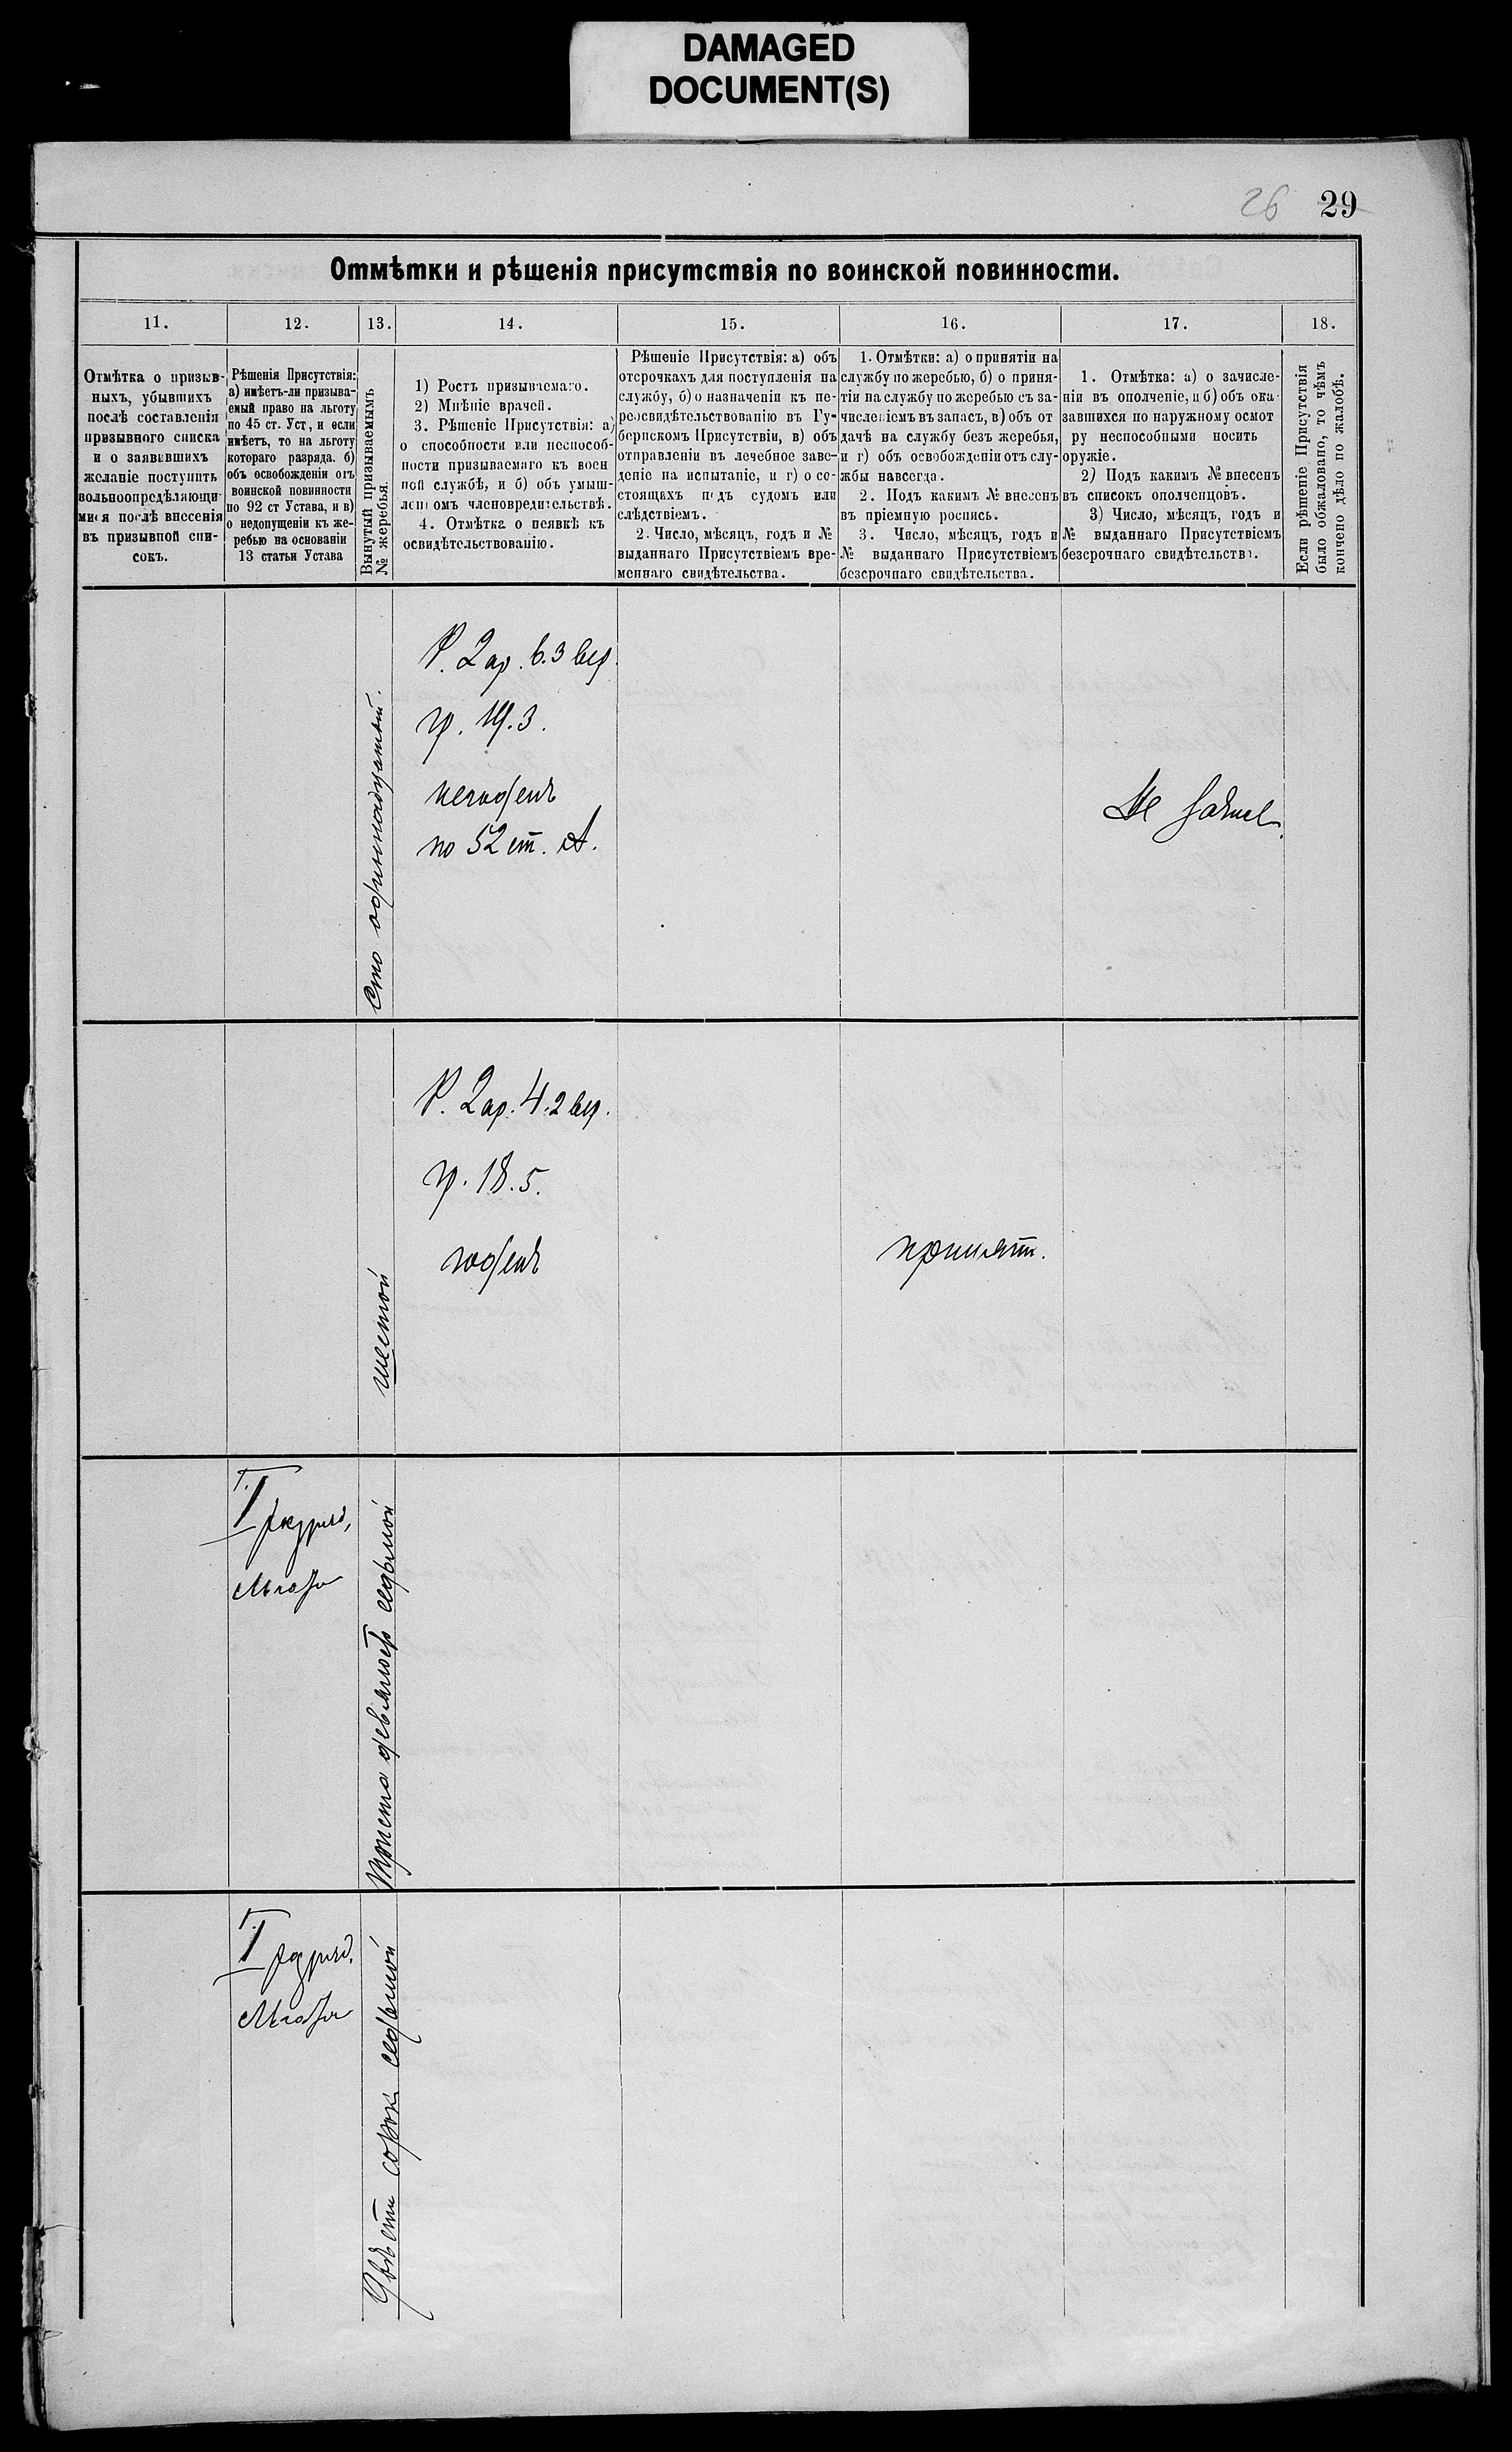 DAMAGED
DOCUMENT(S)
26 29
Отмѣтки и рѣшенія присутствія по воинской повинности.
11. 12. 13. 14. 15. 16. 17. 18.
Отмѣтка о призыв-
ныхъ, убывшихъ
послѣ составленія
призывного списка
и о заявившихъ
желаніе поступить
вольноопредѣляющи-
мися послѣ внесенія
въ призывной спи-
сокъ.
Рѣшенія Присутствія:
а) имѣетъ-ли призыва-
емый право на льготу
по 45 ст. Уст, и если
имѣетъ, то на льготу
котораго разряда. б)
объ освобожденіи отъ
воинской повинности
по 92 ст Устава, и в)
о недопущеніи къ же-
ребью на основаніи
13 статьи Устава
Вынутый призываемымъ
№ жеребья.
1) Ростъ призываемаго.
2) Мнѣніе врачей.
3. Рѣшеніе Присутствія: а)
о способности или неспособ-
ности призываемаго къ воен
ной службѣ, и б) объ умыш-
леномъ членовредительствѣ.
4. Отмѣтка о неявкѣ къ
освидѣтельствованію.
Рѣшеніе Присутствія: а) объ
отсрочкахъ для поступленія на
службу, б) о назначеніи къ пе-
реосвидѣтельствованію въ Гу-
бернскомъ Присутствіи, в) объ
отправленіи въ лечебное заве-
деніе на испытаніе, и г) о со-
стоящихъ подъ судомъ или
слѣдствіемъ.
2. Число, мѣсяцъ, годъ и №
выданнаго Присутствіемъ вре-
меннаго свидѣтельства.
1. Отмѣтки: а) о принятіи на
службу по жеребью, б) о приня-
тіи на службу по жеребью съ за-
численіемъ въ запасъ, в) объ от
дачѣ на службу безъ жеребья,
и г) объ освобожденіи отъ слу-
жбы навсегда.
2. Подъ какимъ № внесенъ
въ пріемную роспись.
3. Число, мѣсяцъ, годъ и
№ выданнаго Присутствіемъ
безсрочнаго свидѣтельства.
1. Отмѣтка: а) о зачисле-
ніи въ ополченіе, и б) объ ока-
завшихся по наружному осмот
ру неспособными носить
оружіе.
2) Подъ какимъ № внесенъ
въ списокъ ополченцовъ.
3) Число, мѣсяцъ, годъ и
№ выданнаго Присутствіемъ
безсрочнаго свидѣтельства.
Если рѣшеніе Присутствія
было обжаловано, то чѣмъ
кончено дѣло по жалобѣ.
Сто одиннадцатый.
Р. 2 ар. 6.3 вер.
гр. 19.3.
негоденъ
по 52 ст. А.
шестой
Р. 2 ар. 4.2 вер.
гр. 18.5.
годенъ
принятъ.
I разряд,
Льгота
Триста девяносто седьмой
I разряд.
Льгота
Двѣсти сорокъ седьмой